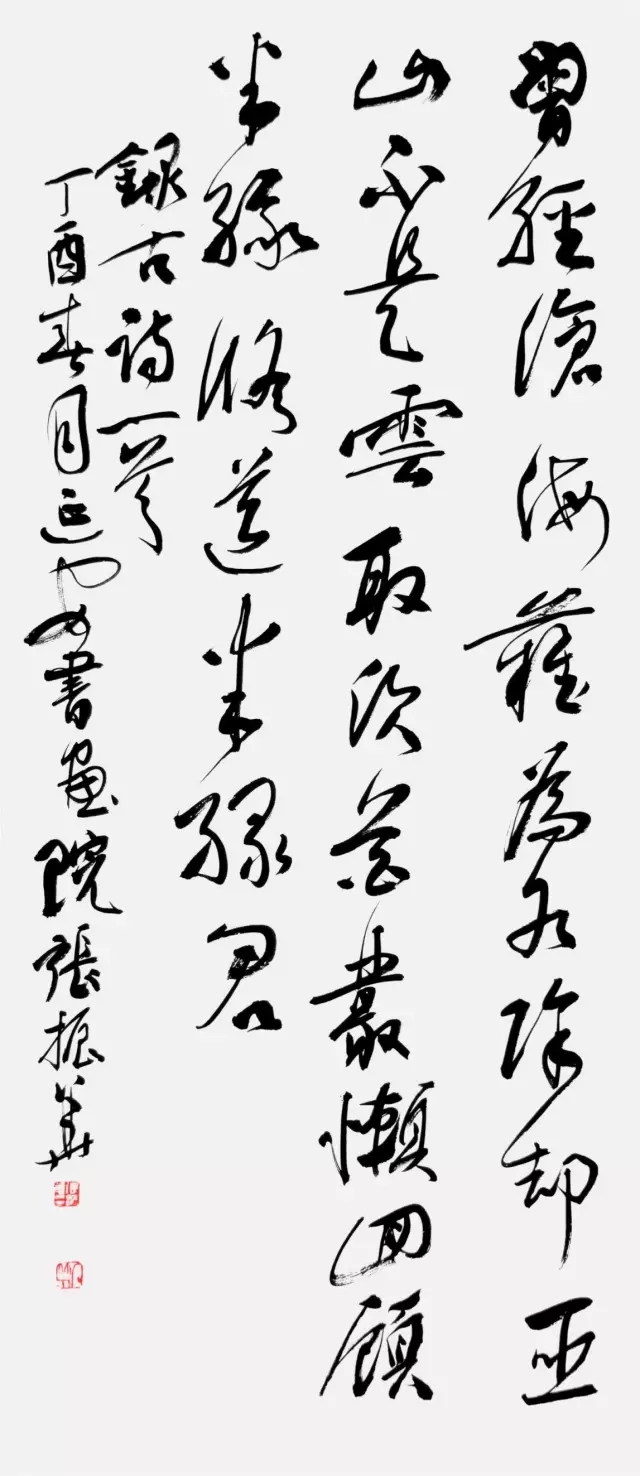 曾經滄海難為水除却巫
山不是雲取次花叢懶回顧
半緣修道半緣君
錄古詩一首
丁酉春月延安書畫院張振華